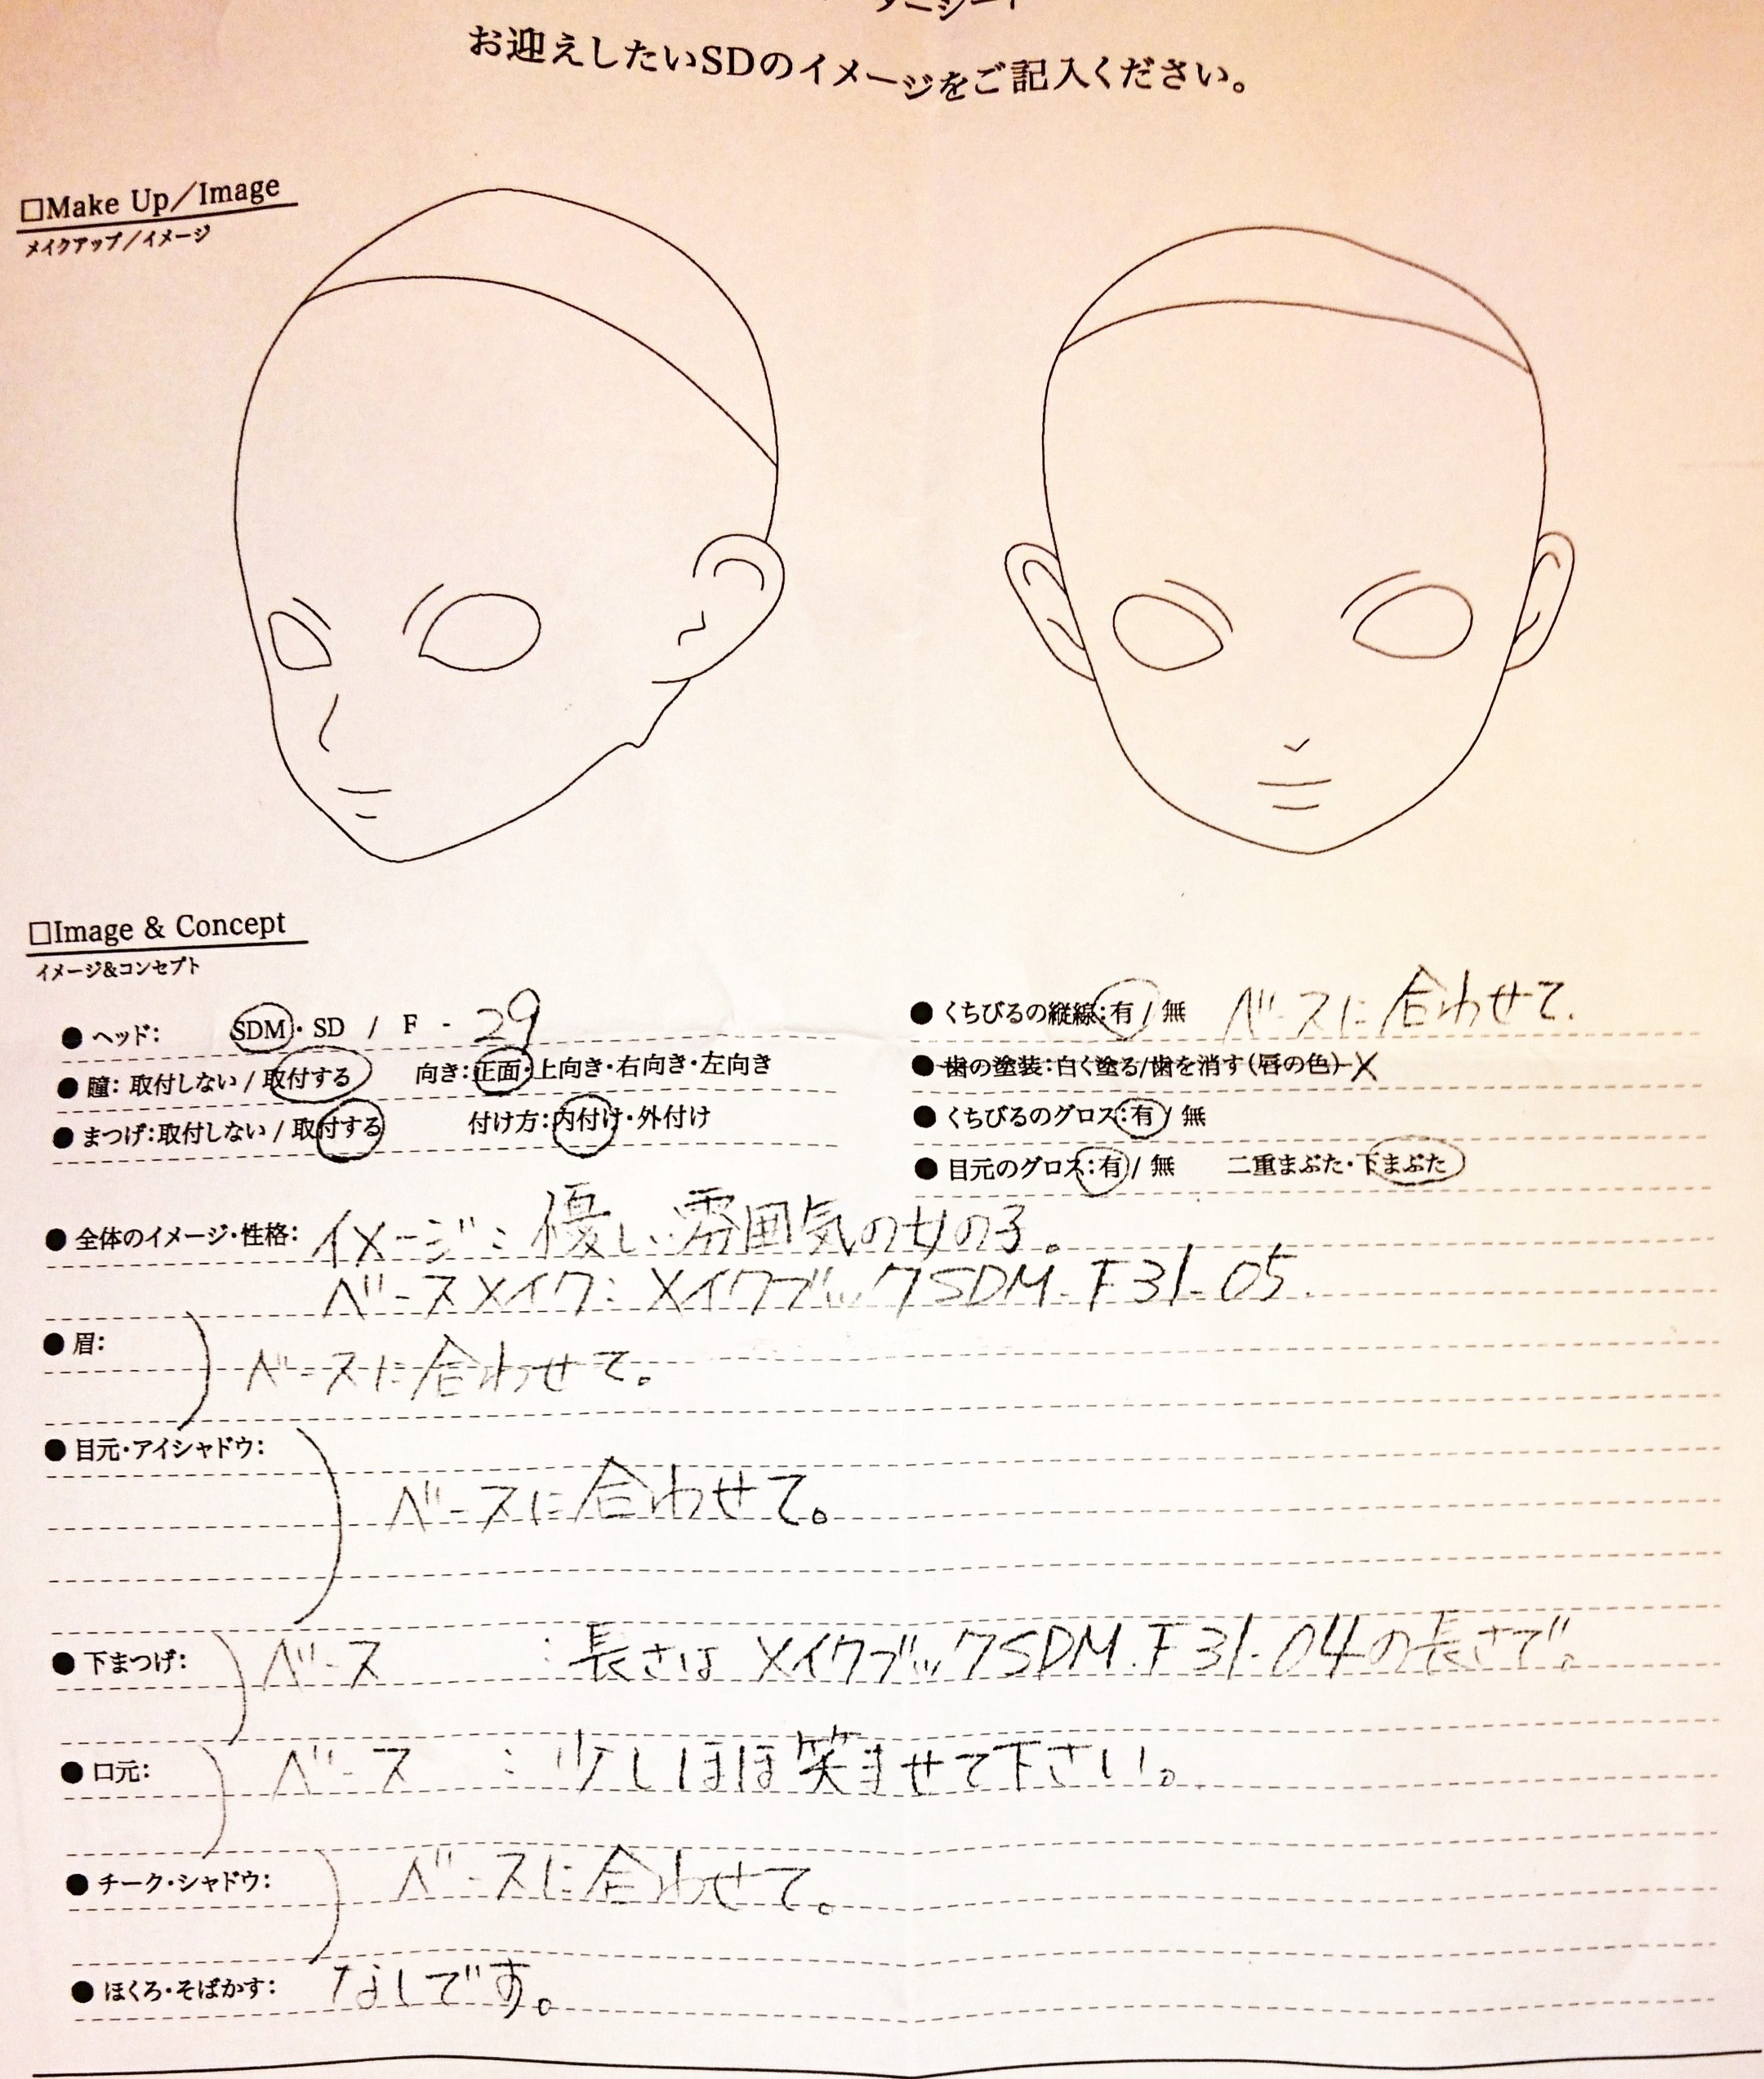 お迎えしたいSDのイメージをご記入ください。
□Make Up／Image
メイクアップ／イメージ
□Image & Concept
イメージ&コンセプト
●ヘッド: SDM・SD / F - 29
●瞳: 取付しない / 取付する 向き: 正面・上向き・右向き・左向き
●まつげ: 取付しない / 取付する 付け方: 内付け・外付け
●くちびるの縦線: 有 / 無 ベースに合わせて.
●歯の塗装: 白く塗る/歯を消す(唇の色) ×
●くちびるのグロス: 有 / 無
●目元のグロス: 有 / 無 二重まぶた・下まぶた
●全体のイメージ・性格: イメージ: 優しい雰囲気の女の子。
ベースメイク: メイクブックSDM.F31-05.
●眉:
ベースに合わせて。
●目元・アイシャドウ:
ベースに合わせて。
●下まつげ: ベース : 長さはメイクブックSDM.F31-04の長さで。
●口元: ベース : 少しほほ笑ませて下さい。
●チーク・シャドウ: ベースに合わせて。
●ほくろ・そばかす: なしです。